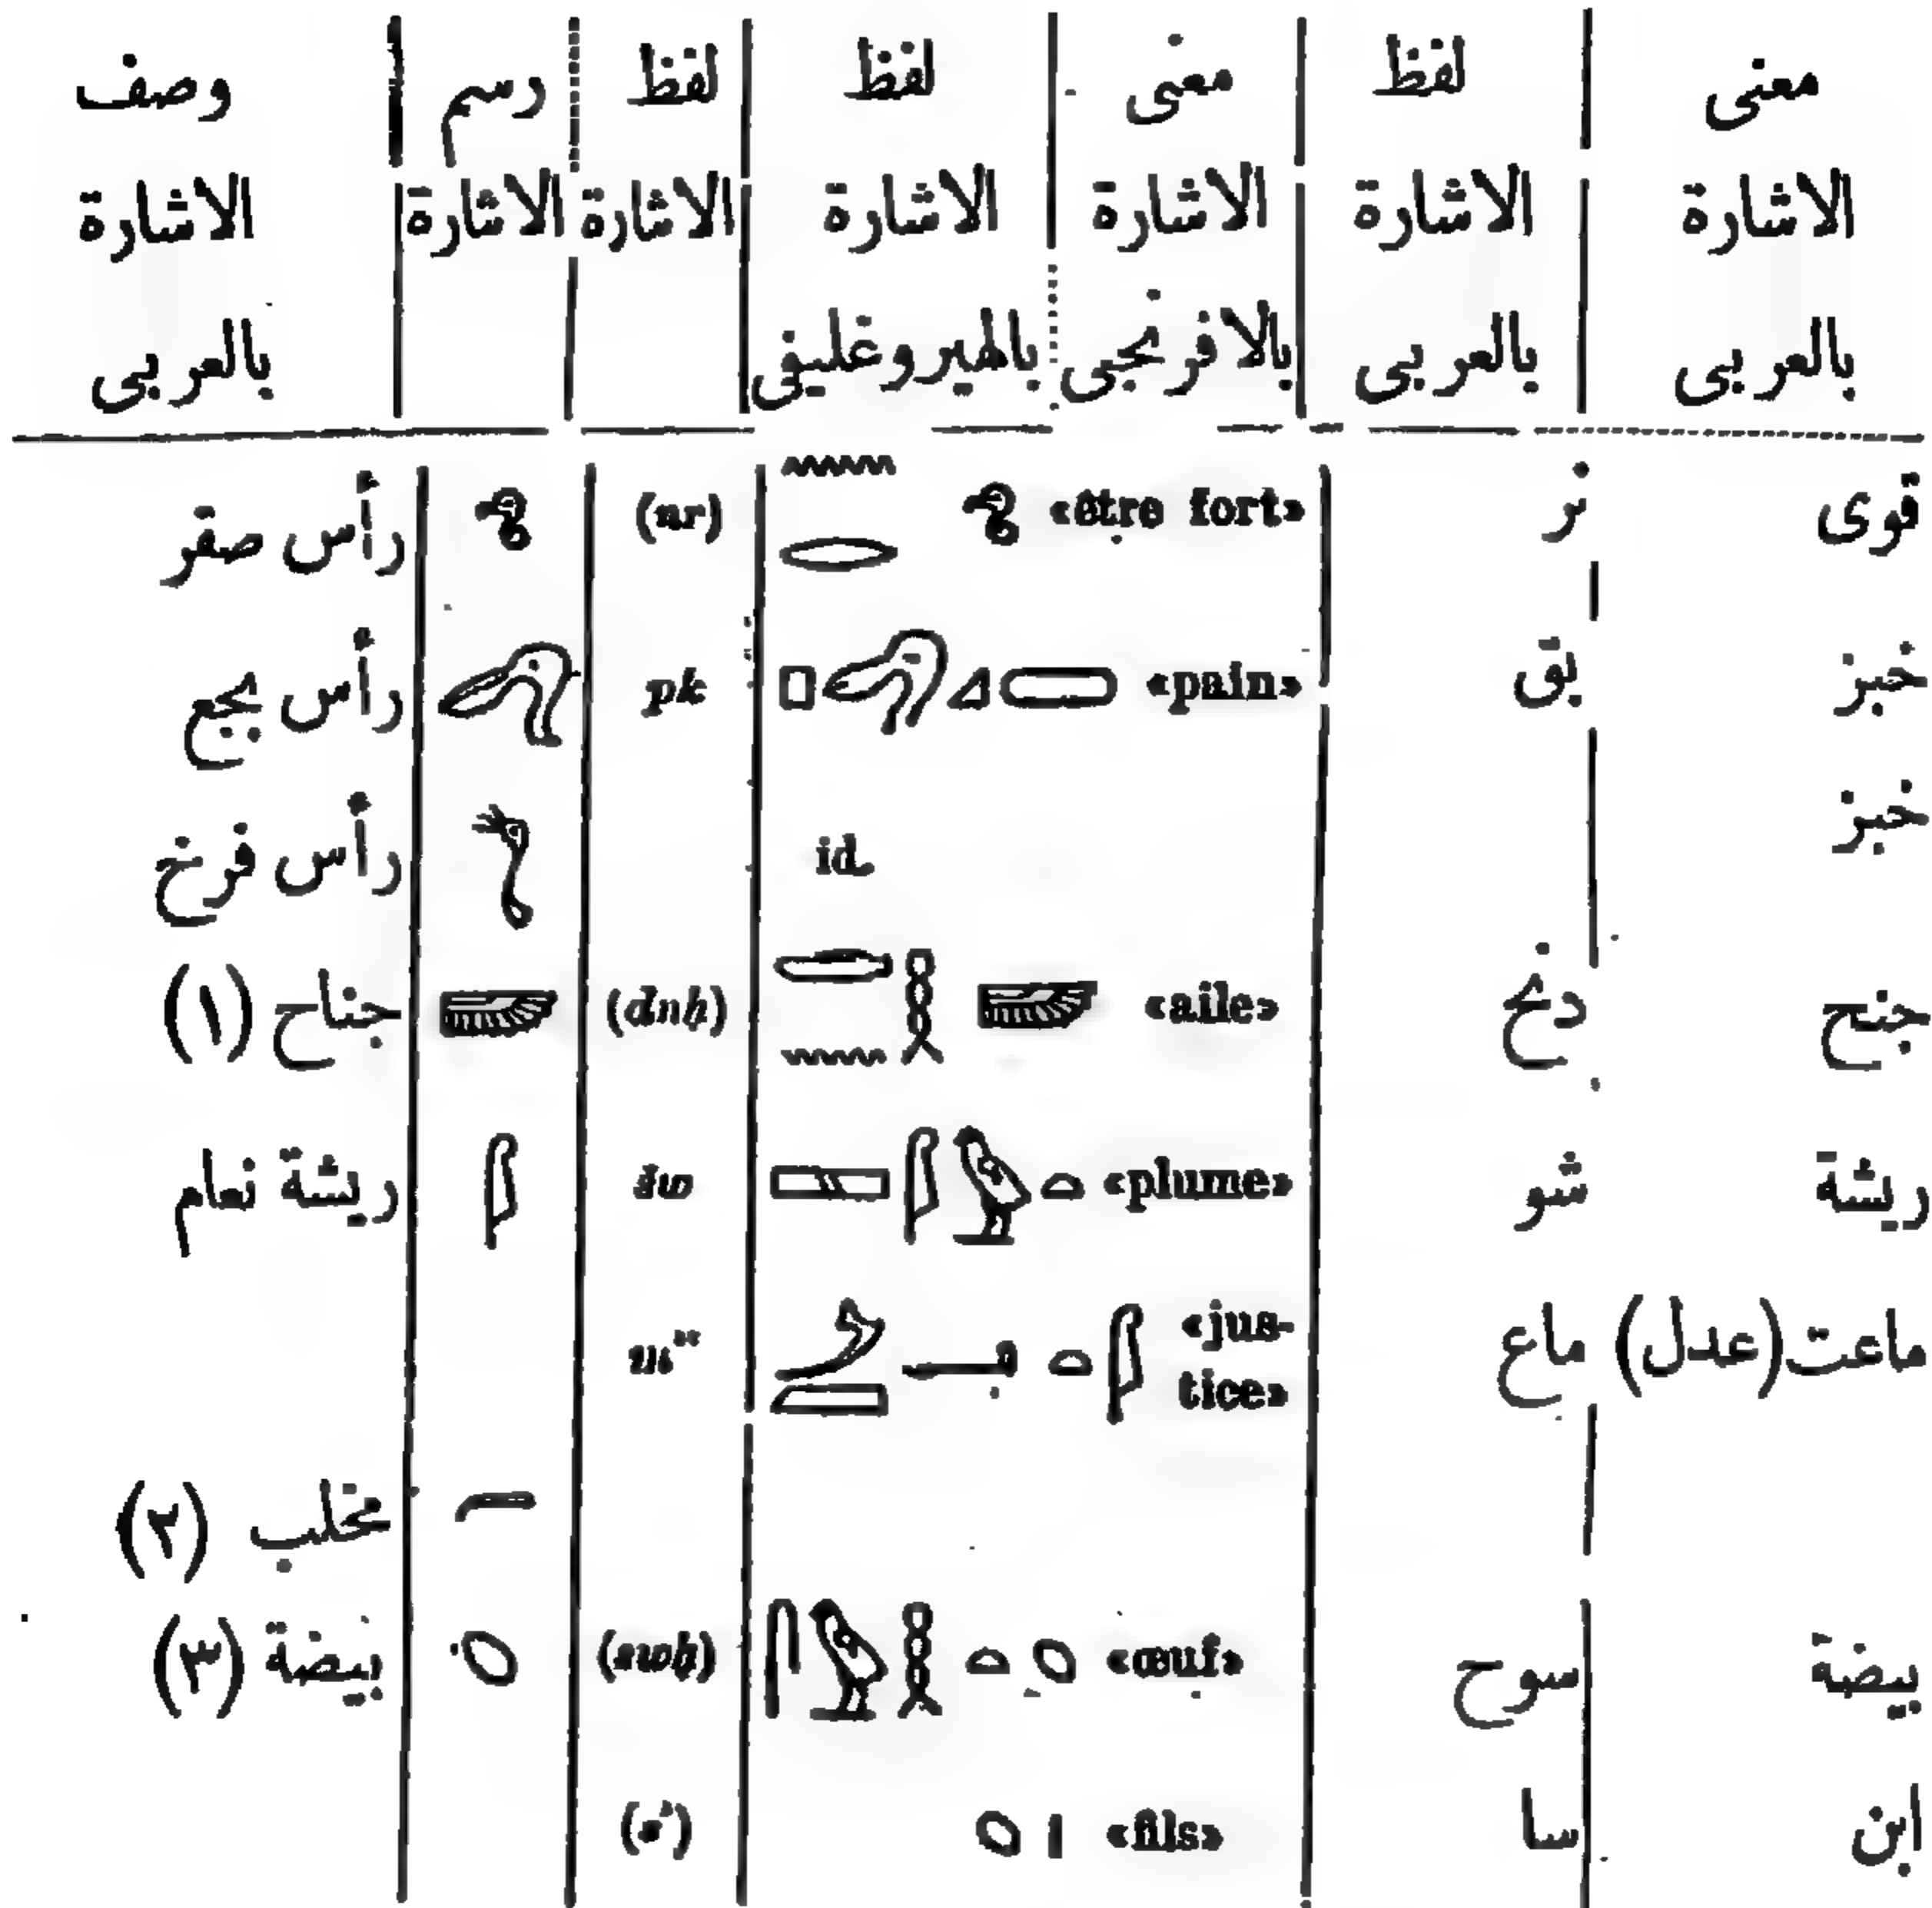 معنى الاشارة بالعربى | لفظ الاشارة بالعربى | معنى الاشارة بالافرنجى | لفظ الاشارة بالهيروغليفى | لفظ الاشارة | رسم الاشارة | وصف الاشارة بالعربى
قوى نر «être fort» (nr) رأس صقر
خبز بق «pain» pk رأس بجع
خبز id. رأس فرخ
جنح دنح «aile» (dnḥ) جناح (١)
ريشة شو «plume» šw ريشة نعام
ماعت (عدل) ماع «jus-
tice»
مخلب (٢)
بيضة سوح «œuf» (swḥ) بيضة (٣)
ابن سا «fils»